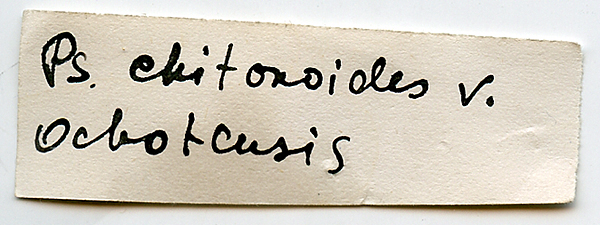 Ps. chitonoides v.
ochotensis